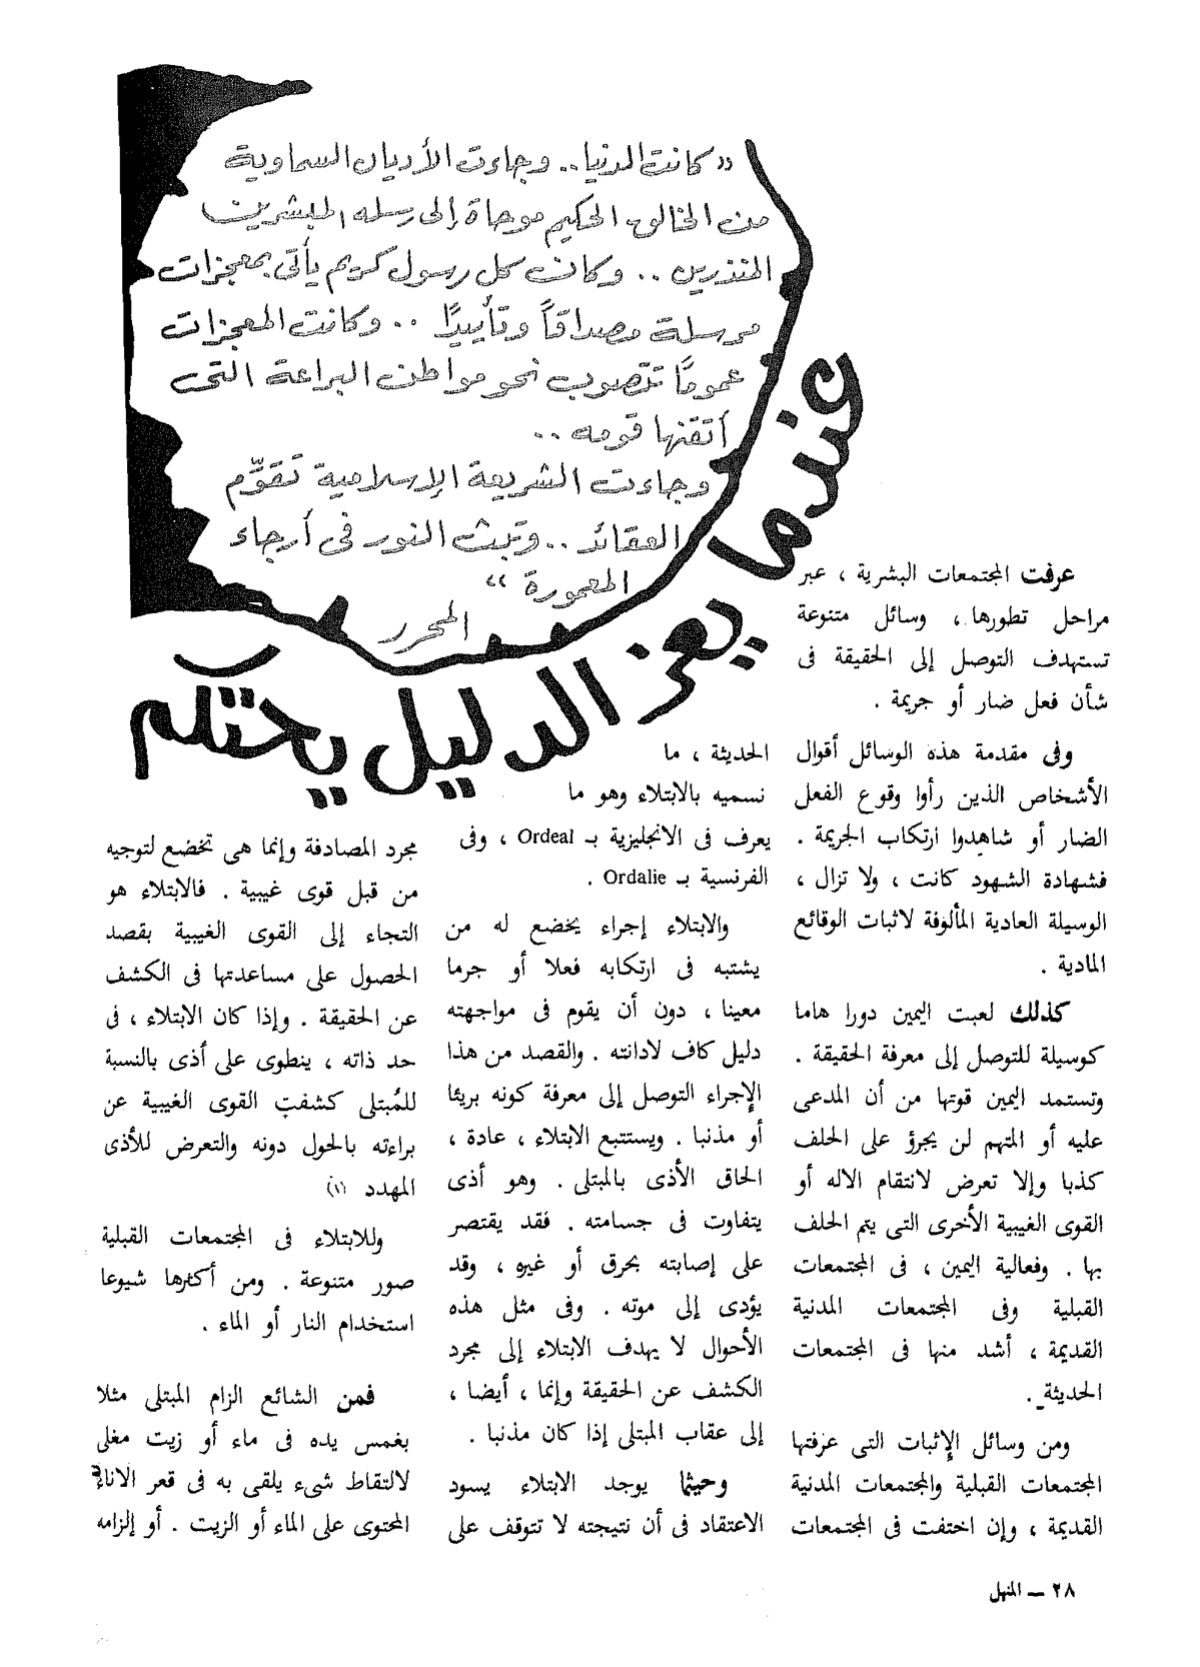 « كانت الدنيا.. وجاءت الأديان السماوية
من الخالق الحكيم موحاة إلى رسله المبشرين
المنذرين .. وكان كل رسول كريم يأتى بمعجزات
مرسلة مصداقاً وتأييدًا .. وكانت المعجزات
عمومًا تتصوب نحو مواطن البراعة التى
أتقنها قومه ..
وجاءت الشريعة الإسلامية تقوّم
العقائد .. وتبث النور فى أرجاء
المعمورة »
المحرر
عندما يعز الدليل يحتكم
عرفت المجتمعات البشرية ، عبر
مراحل تطورها ، وسائل متنوعة
تستهدف التوصل إلى الحقيقة فى
شأن فعل ضار أو جريمة .
وفى مقدمة هذه الوسائل أقوال
الأشخاص الذين رأوا وقوع الفعل
الضار أو شاهدوا ارتكاب الجريمة .
فشهادة الشهود كانت ، ولا تزال ،
الوسيلة العادية المألوفة لاثبات الوقائع
المادية .
كذلك لعبت اليمين دورا هاما
كوسيلة للتوصل إلى معرفة الحقيقة .
وتستمد اليمين قوتها من أن المدعى
عليه أو المتهم لن يجرؤ على الحلف
كذبا وإلا تعرض لانتقام الاله أو
القوى الغيبية الأخرى التى يتم الحلف
بها . وفعالية اليمين ، فى المجتمعات
القبلية وفى المجتمعات المدنية
القديمة ، أشد منها فى المجتمعات
الحديثة .
ومن وسائل الإثبات التى عرفتها
المجتمعات القبلية والمجتمعات المدنية
القديمة ، وإن اختفت فى المجتمعات
الحديثة ، ما
نسميه بالابتلاء وهو ما
يعرف فى الانجليزية بـ Ordeal ، وفى
الفرنسية بـ Ordalie .
والابتلاء إجراء يخضع له من
يشتبه فى ارتكابه فعلا أو جرما
معينا ، دون أن يقوم فى مواجهته
دليل كاف لادانته . والقصد من هذا
الإجراء التوصل إلى معرفة كونه بريئا
أو مذنبا . ويستتبع الابتلاء ، عادة ،
الحاق الأذى بالمبتلى . وهو أذى
يتفاوت فى جسامته . فقد يقتصر
على إصابته بحرق أو غيره ، وقد
يؤدى إلى موته . وفى مثل هذه
الأحوال لا يهدف الابتلاء إلى مجرد
الكشف عن الحقيقة وإنما ، أيضا ،
إلى عقاب المبتلى إذا كان مذنبا .
وحيثما يوجد الابتلاء يسود
الاعتقاد فى أن نتيجته لا تتوقف على
مجرد المصادفة وإنما هى تخضع لتوجيه
من قبل قوى غيبية . فالابتلاء هو
التجاء إلى القوى الغيبية بقصد
الحصول على مساعدتها فى الكشف
عن الحقيقة . وإذا كان الابتلاء ، فى
حد ذاته ، ينطوى على أذى بالنسبة
للمُبتلى كشفت القوى الغيبية عن
براءته بالحول دونه والتعرض للأذى
المهدد (١)
وللابتلاء فى المجتمعات القبلية
صور متنوعة . ومن أكثرها شيوعا
استخدام النار أو الماء .
فمن الشائع الزام المبتلى مثلا
بغمس يده فى ماء أو زيت مغلى
لالتقاط شىء يلقى به فى قعر الاناء
المحتوى على الماء أو الزيت . أو إلزامه
٢٨ — المنهل